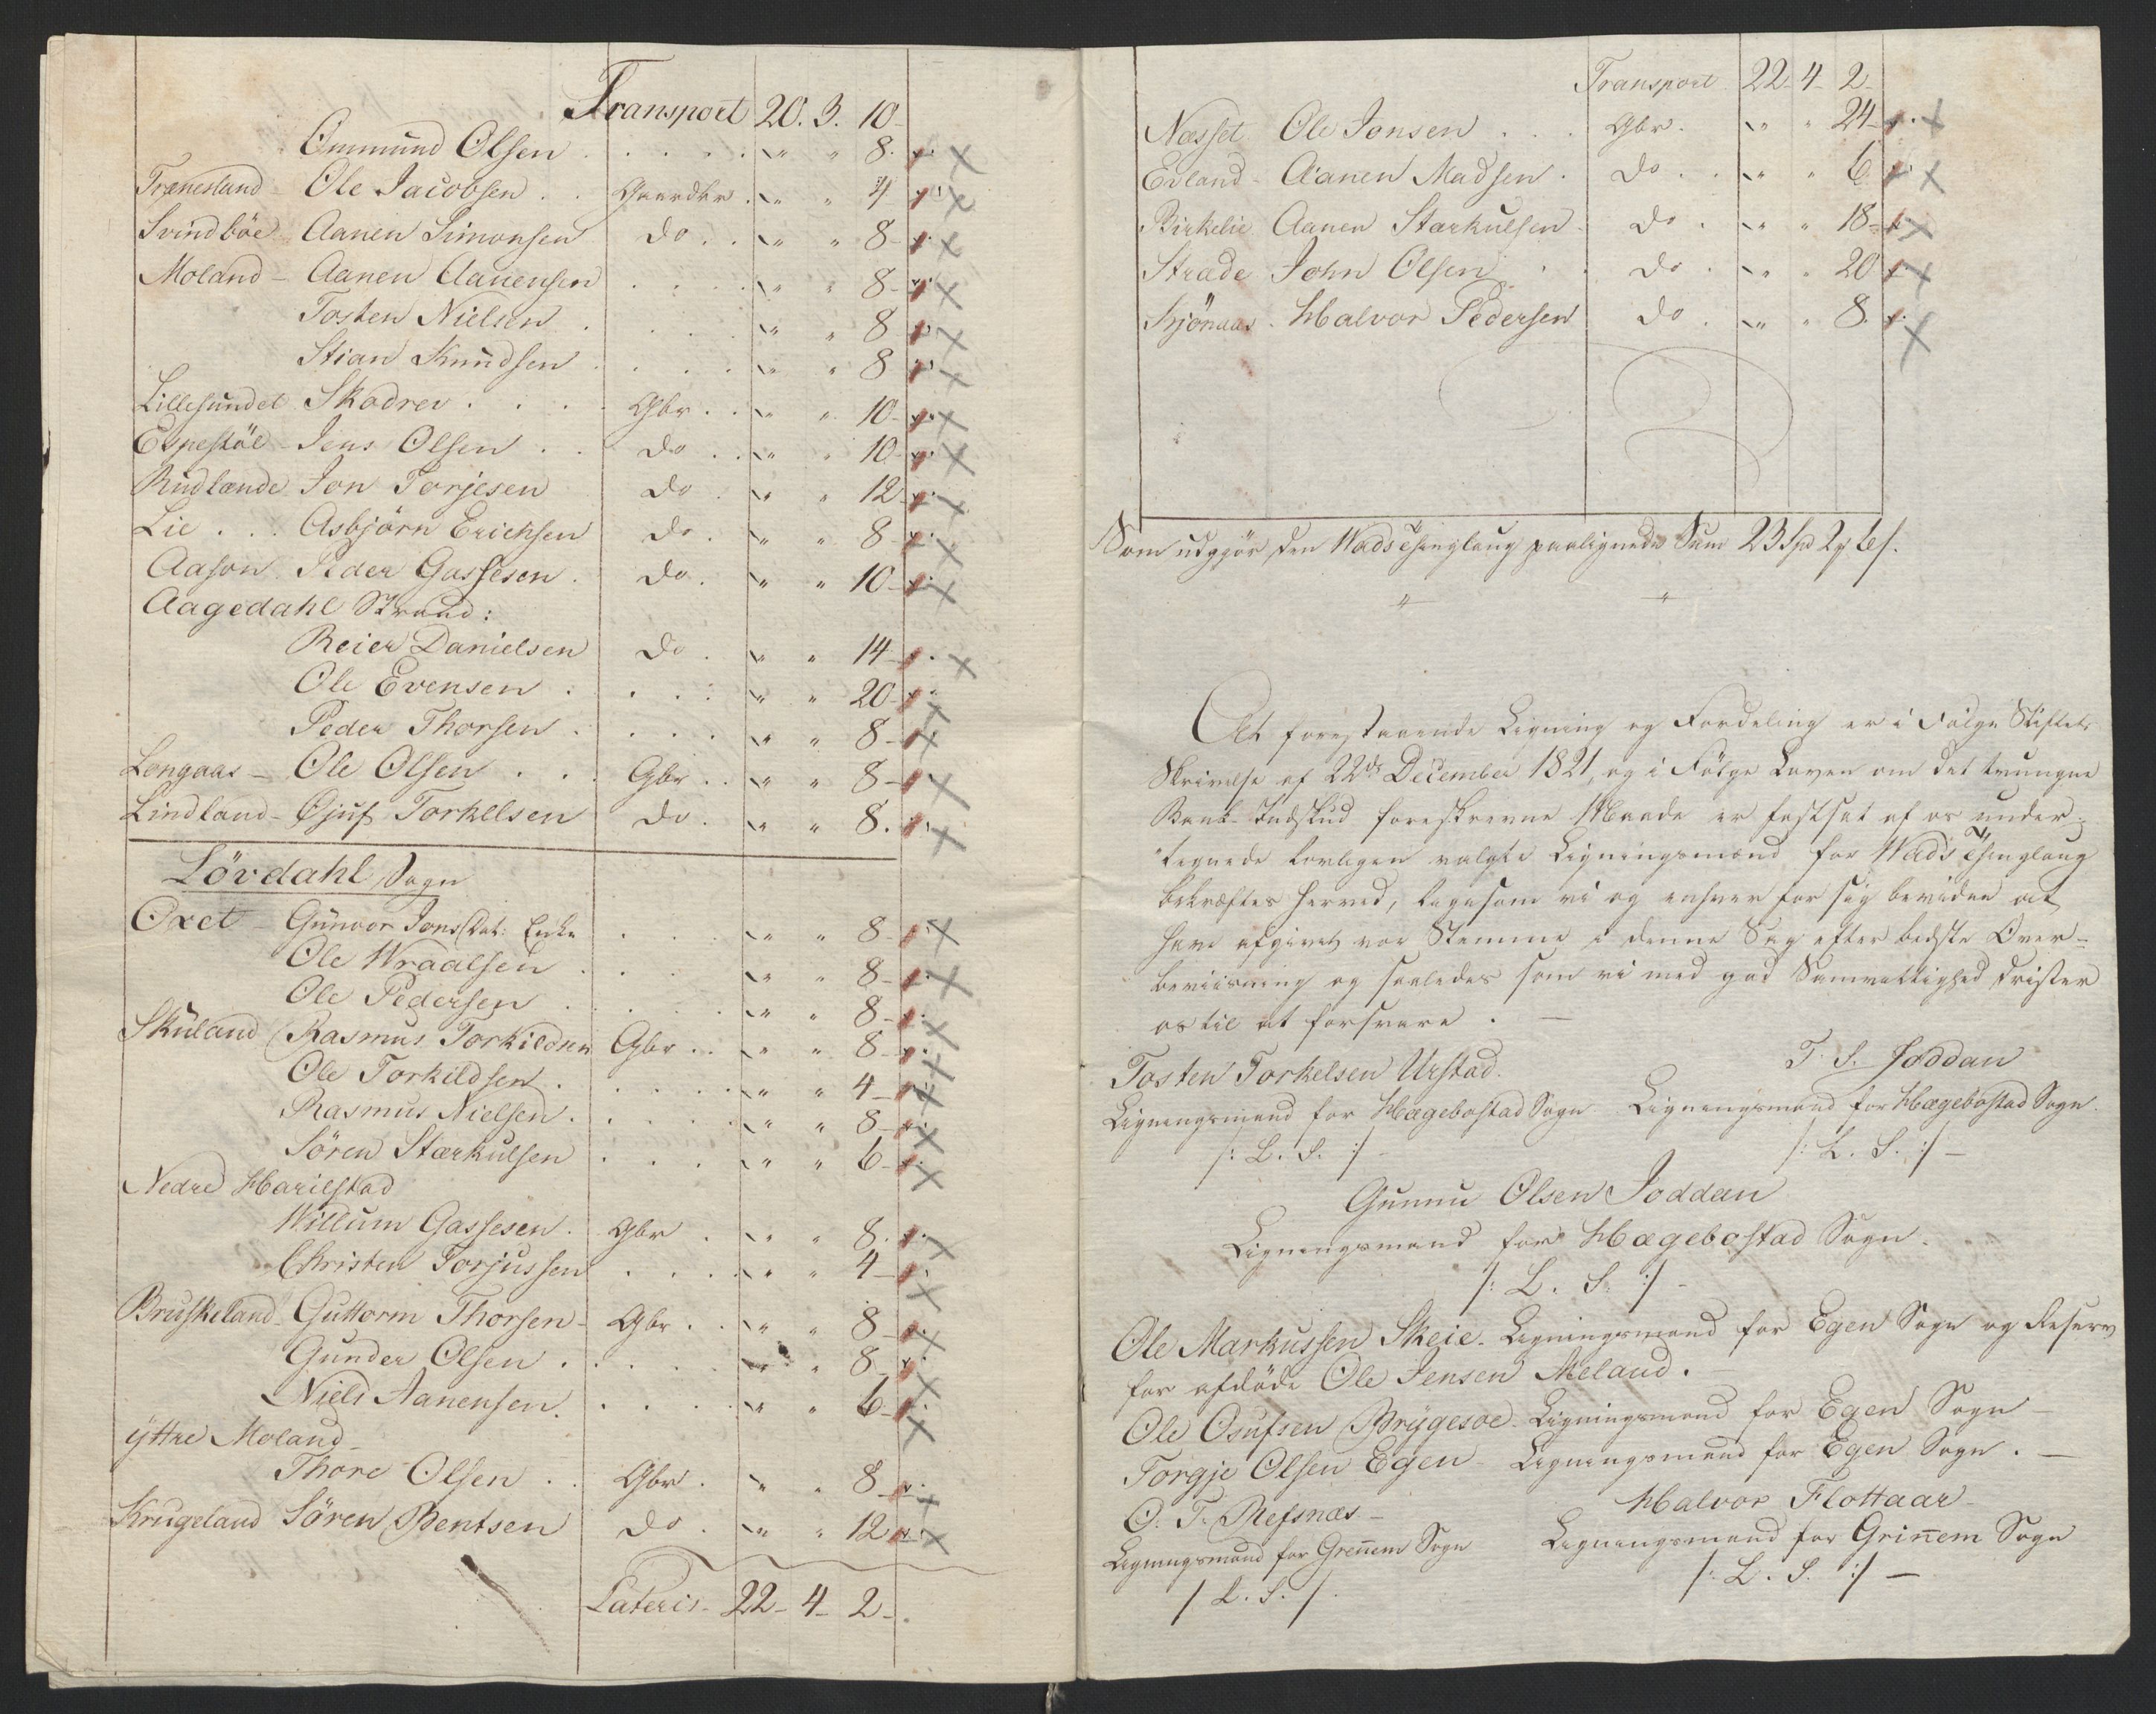 Transport 20. 3. 10-
Ommund Olsen . . . . . " " 8.
Trænesland - Ole Jacobsen . . Gaardbr . " " 4
Svindböe Aanen Simonsen do . . " " 8-
Moland - Aanen Aanensen . . . . " " 8-
Tosten Nielsen . . . " " 8
Stian Knudsen . . . . " " 8
Lillesundet Skodrev . . . . Gbr . . " " 10-
Espestöl - Jens Olsen . . do . . " " 10-
Rudlænde Jon Torjesen do . " " 12-
Lie . . . Asbjörn Erichsen do . " " 8-
Aason Peder Gassesen . do . " " 10-
Aagedahl Strand:
Reier Danielsen do . " " 14-
Ole Evensen . . . . " " 20-
Peder Thorsen . . . . " " 8-
Longaas - Ole Olsen . . . Gbr . . " " 8-
Lindland - Ojuf Torkelsen do . " " 8.
Lövdahl Sogn
Oxet - Gunvor Jons Dat: Enke . . . " " 8-
Ole Wraalsen . . . " " 8-
Ole Pedersen . . . . " " 8-
Skuland Rasmus Torkildsen Gbr . . " " 8-
Ole Torkildsen . . . . " " 4-
Rasmus Nielsen . . . . " " 8-
Sören Stærkulsen . . . " " 6-
Nedre Harilstad
Willum Gassesen . Gbr . " " 8.
Christen Torjussen . . . . " " 4-
Bruskeland - Guttorm Thorsen - Gbr . . " " 8-
Gunder Olsen . . . . " 8-
Niels Aanensen . . . . " " 6-
Yttre Moland -
Thore Olsen . . Gbr . " " 8-
Krugeland Sören Bentsen do . " " 12-
Lateris - 22- 4- 2-
Transport 22- 4- 2-
Nesset Ole Jonsen . . . Gbr . " " 24-
Evland - Aanen Madsen . do . . " " 6
Birkelie Aanen Starkulsen - do . " " 18-
Strade John Olsen . . do . " " 20
Sjönaas - Halvor Pedersen do . " " 8.
Som udgjör den Wads Thinglaug paalignede Sum 23 Spd 2 6 s.
At forestaaende Ligning og Fordeling er i Følge Stiftets
Skrivelse af 22de December 1821, og i Følge Loven om det tvungne
Bank-Indskud foreskrevne Maade er fastsat af os under-
tegnede lovligen valgte Ligningsmænd for Wads Thinglaug
bekræftes herved, ligesom vi og enhver for sig bevidne at
have afgivet vor Stemme i denne Sag efter bedste Over-
beviisning og saaledes som vi med god Samvittighed trister
os til at forsvare . -
Tosten Torkelsen Urstad. T. S. Joddan
Ligningsmand for Hægebostad Sogn Ligningsmand for Hægebostad Sogn.
/: L. S. :/ - /: L. S. :/ -
Gunnu Olsen Joddan
Ligningsmand for Hægebostad Sogn.
/: L. S. :/ -
Ole Markussen Skeie. Ligningsmand for Egen Sogn og Reserv
for afdöde Ole Jensen Meland.
Ole Osufsen Brygesoe - Ligningsmand for Egen Sogn -
Torgje Olsen Egen - Ligningsmand for Egen Sogn. -
O. T. Refsnæs. - Halvor Flottaar -
Ligningsmand for Grennem Sogn Ligningsmand for Grinnem Sogn
/ L. S. /. /: L. S. :/ -